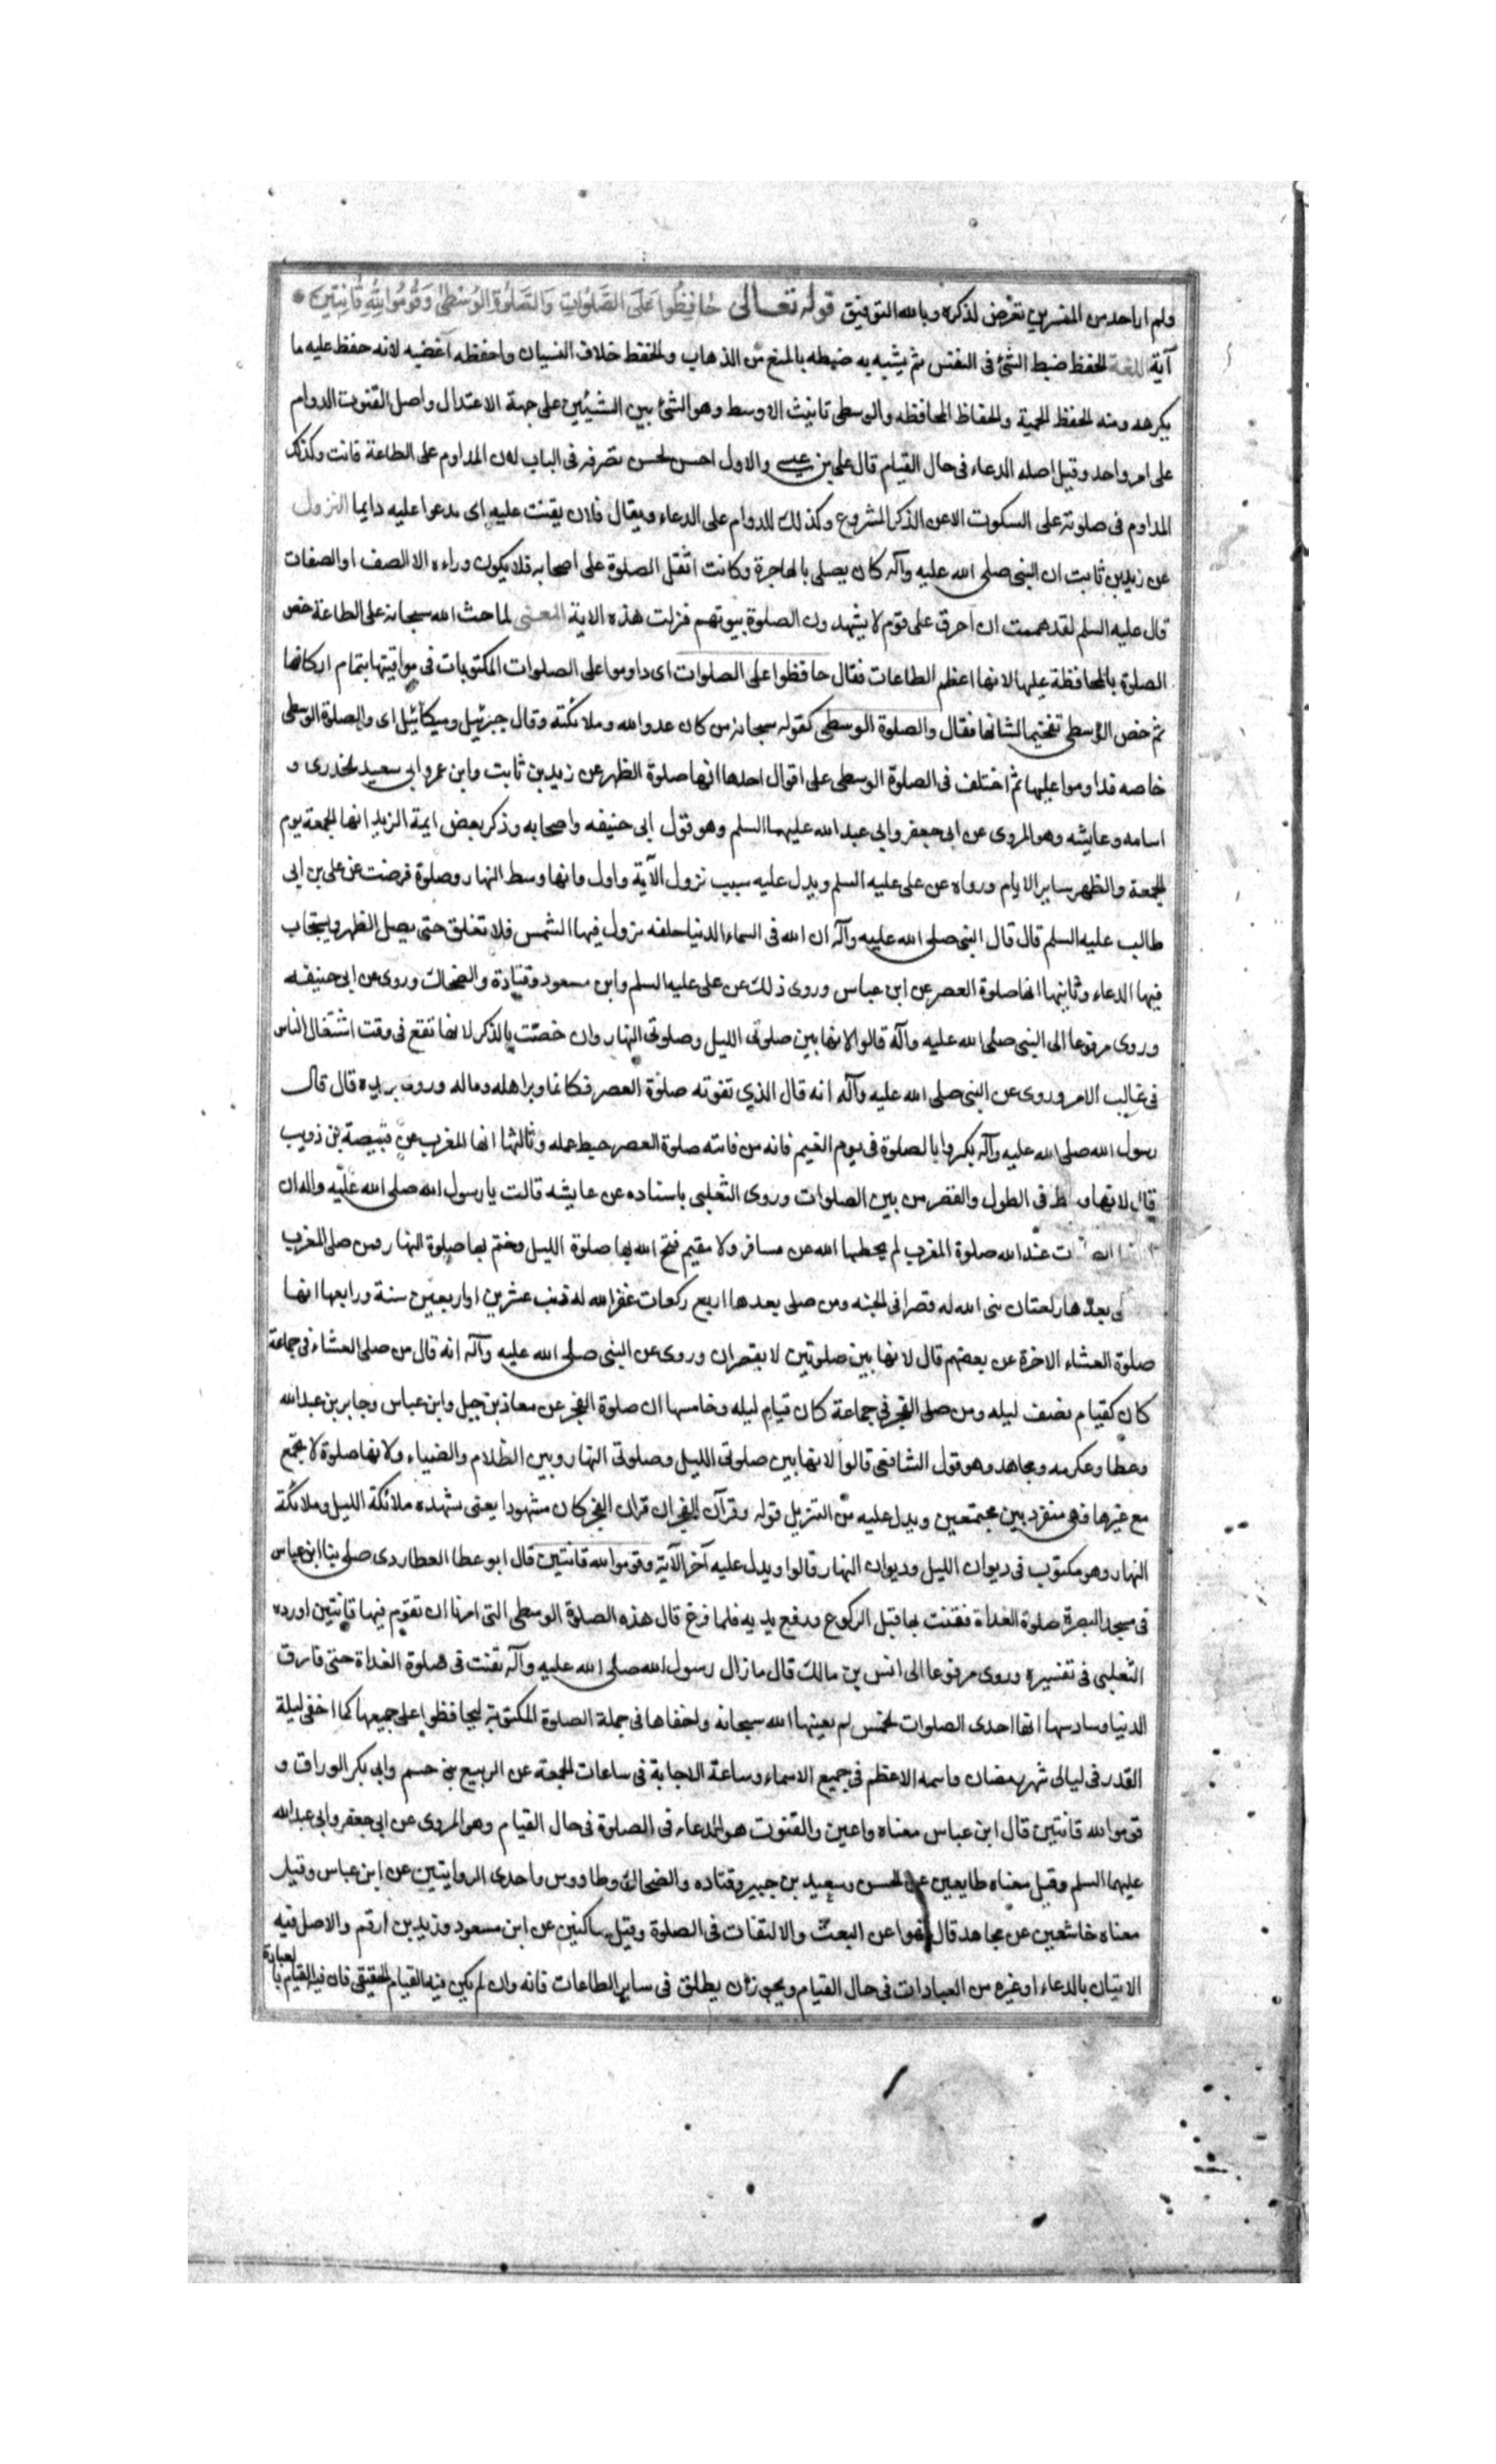 ولم ار احد من المفسرين تعرض لذكره وبالله التوفيق قوله تعالى حَافِظُوا عَلَى الصَّلَوَاتِ وَالصَّلَوةِ الْوُسْطَى وَقُومُوا لِلَّهِ قَانِتِينَ
آية اللغة الحفظ ضبط الشئ فى النفس ثم يشبه به ضبطه بالمنع من الذهاب والحفظ خلاف النسيان واحفظه اغضبه لانه حفظ عليه ما
يكرهه ومنه الحفظ الحمية والحفاظ المحافظه والوسطى تانيث الاوسط وهو الشئ بين الشيئين على جهة الاعتدال واصل القنوت الدوام
على امر واحد وقيل اصله الدعاء فى حال القيام قال على بن عيسى والاول احسن لحسن تصرفه فى الباب لان المداوم على الطاعة قانت وكذلك
المداوم فى صلوته على السكوت الا عن الذكر المشروع وكذلك للدوام على الدعاء ويقال فلان يقنت عليه اى يدعوا عليه دايما النزول
عن زيد بن ثابت ان النبى صلى الله عليه وآله كان يصلى بالهاجرة وكانت اثقل الصلوة على اصحابه فلا يكون وراءه الا الصف او الصفان
قال عليه السلم لقد هممت ان احرق على قوم لا يشهدون الصلوة بيوتهم فنزلت هذه الاية المعنى لما حث الله سبحانه على الطاعة خص
الصلوة بالمحافظة عليها لانها اعظم الطاعات فقال حافظوا على الصلوات اى داوموا على الصلوات المكتوبات فى مواقيتها بتمام اركانها
ثم خص الوسطى تفخيما لشانها فقال والصلوة الوسطى كقوله سبحانه من كان عدوا لله وملائكته وقال جبرئيل وميكائيل اى والصلوة الوسطى
خاصه فداوموا عليها ثم اختلف فى الصلوة الوسطى على اقوال احدها انها صلوة الظهر عن زيد بن ثابت وابن عمر وابى سعيد الخدرى و
اسامه وعايشه وهو المروى عن ابى جعفر وابى عبد الله عليهما السلم وهو قول ابى حنيفه واصحابه وذكر بعض ايمة الزيد انها الجمعة يوم
الجمعة والظهر ساير الايام ورواه عن على عليه السلم ويدل عليه سبب نزول الآية واول وانها وسط النهار وصلوة فرضت عن على بن ابى
طالب عليه السلم قال قال النبى صلى الله عليه وآله ان الله فى السماء الدنيا حلقه نزول فيها الشمس فلا تغلق حتى يصل الظهر ويستجاب
فيها الدعاء وثانيها انها صلوة العصر عن ابن عباس وروى ذلك عن على عليه السلم وابن مسعود وقتادة والضحاك وروى عن ابى حنيفه
وروى مرفوعا الى النبى صلى الله عليه وآله قالوا لانها بين صلوتى الليل وصلوتى النهار وان خصّت بالذكر لانها تقع فى وقت اشتغال الناس
فى غالب الامر وروى عن النبى صلى الله عليه وآله انه قال الذى تفوته صلوة العصر فكانما وبر اهله وماله وروى بريده قال قال
رسول الله صلى الله عليه وآله بكروا بالصلوة فى يوم الغيم فانه من فاتته صلوة العصر حبط عمله وثالثها انها المغرب عن قبيصة بن ذويب
قال لانها وسط فى الطول والقصر من بين الصلوات وروى الثعلبى باسناده عن عايشه قالت يا رسول الله صلى الله عليه واله ان
عند الله صلوة المغرب لم يحطها الله عن مسافر ولا مقيم فتح الله بها صلوة الليل وختم بها صلوة النهار ومن صلى المغرب
بعدها ركعتان بنى الله له قصرا فى الجنه ومن صلى بعدها اربع ركعات غفر الله له ذنب عشرين او اربعين سنة ورابعها انها
صلوة العشاء الاخرة عن بعضهم قال لانها بين صلوتين لا يقصران وروى عن النبى صلى الله عليه وآله انه قال من صلى العشاء فى جماعة
كان كقيام نصف ليله ومن صلى الفجر فى جماعة كان قيام ليله وخامسها ان صلوة الفجر عن معاذ بن جبل وابن عباس وجابر بن عبد الله
وعطا وعكرمه ومجاهد وهو قول الشافعى قالوا لانها بين صلوتى الليل وصلوتى النهار وبين الظلام والضياء ولانها صلوة لا تجمع
مع غيرها فهى منفرد بين مجتمعين ويدل عليه من التنزيل قوله وقرآن الفجر ان قران الفجر كان مشهودا يعنى تشهده ملائكة الليل وملائكة
النهار وهو مكتوب فى ديوان الليل وديوان النهار قالوا ويدل عليه آخر الآية وقوموا لله قانتين قال ابو عطا العطاردى صلى بنا ابن عباس
فى مسجد البصرة صلوة الغداة فقنت بها قبل الركوع ورفع يديه فلما فرغ قال هذه الصلوة الوسطى التى امرنا ان نقوم فيها قانتين اورده
الثعلبى فى تفسيره وروى مرفوعا الى انس بن مالك قال ما زال رسول الله صلى الله عليه وآله يقنت فى صلوة الغداة حتى فارق
الدنيا وسادسها انها احدى الصلوات الخمس لم يعينها الله سبحانه واخفاها فى جملة الصلوة المكتوبة ليحافظوا على جميعها كما اخفى ليلة
القدر فى ليالى شهر رمضان واسمه الاعظم فى جميع الاسماء وساعة الاجابة فى ساعات الجمعة عن الربيع بن خسم وابى بكر الوراق و
قوموا لله قانتين قال ابن عباس معناه داعين والقنوت هو الدعاء فى الصلوة فى حال القيام وهو المروى عن ابى جعفر وابى عبد الله
عليهما السلم وقيل معناه طايعين عن الحسن وسعيد بن جبير وقتاده والضحاك وطاووس واحدى الروايتين عن ابن عباس وقيل
معناه خاشعين عن مجاهد قال نهوا عن البعث والالتفات فى الصلوة وقيل ساكنين عن ابن مسعود وزيد بن ارقم والاصل فيه
الاتيان بالدعاء او غيره من العبادات فى حال القيام ويجوز ان يطلق فى ساير الطاعات فانه وان لم يكن فيه القيام الحقيقى فان فيه القيام بالعبادة